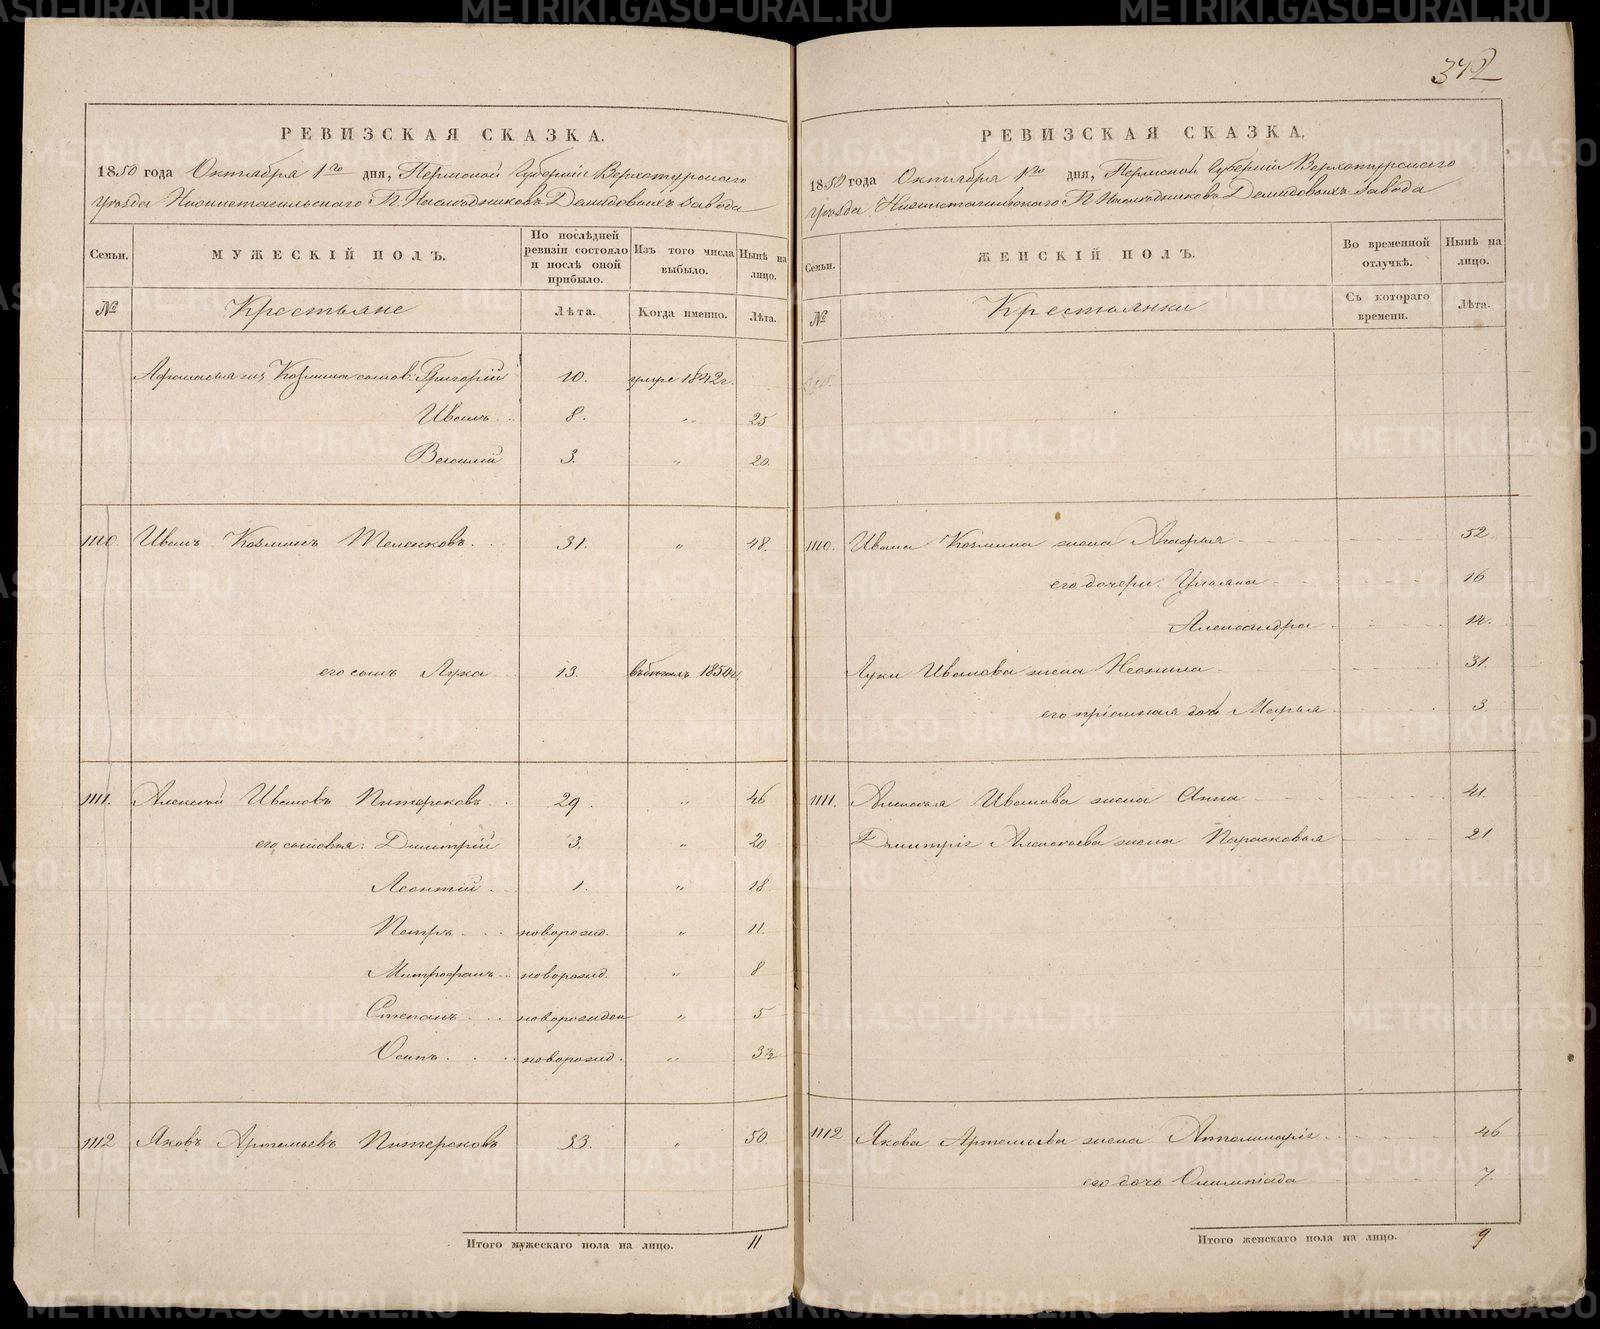 372
РЕВИЗСКАЯ СКАЗКА.
1850 года Октября 1го дня, Пермской Губерніи Верхотурскаго
уѣзда Нижнетагильскаго Г.г. Наслѣдниковъ Демидовыхъ завода
Семьи.
МУЖЕСКІЙ ПОЛЪ.
По послѣдней ревизіи состояло и послѣ оной прибыло.
Изъ того числа выбыло.
Нынѣ на лицо.
№
Крестьяне
Лѣта.
Когда именно.
Лѣта.
Козмина сыновья Григорій 10. умре 1842г.
Иванъ 8. " 25
Василій 3. " 20.
1110. Иванъ Козминъ Теленковъ. 31. " 48.
его сынъ Лука 13. въ бѣгахъ 1850г.
1111. Алексѣй Ивановъ Питерсковъ 29. " 46
его сыновья: Дмитрій 3. " 20
Леонтій 1. " 18.
Петръ новорожд. " 11.
Митрофанъ новорожд. " 8
Степанъ новорожден " 5
Осипъ новорожд. " 3½
1112 Яковъ Артемьевъ Питерсковъ 33. " 50.
Итого мужескаго пола на лицо. 11
РЕВИЗСКАЯ СКАЗКА.
1850 года Октября 1го дня, Пермской Губерніи Верхотурскаго
уѣзда Нижнетагильскаго Г.г. Наслѣдниковъ Демидовыхъ Завода
Семьи.
ЖЕНСКІЙ ПОЛЪ.
Во временной отлучкѣ.
Нынѣ на лицо.
№
Крестьянки
Съ котораго времени.
Лѣта.
1110. Ивана Козмина жена Агафья 52
его дочери: Ульяна 16
Александра 14.
Луки Иванова жена Неонила 31.
его пріемная дочь Марья 3.
1111. Алексѣя Иванова жена Анна 41.
Дмитрія Алексѣева жена Парасковья 21
1112 Якова Артемьева жена Апполинарія 46
его дочь Олимпіада 7.
Итого женскаго пола на лицо. 9
METRIKI.GASO-URAL.RU